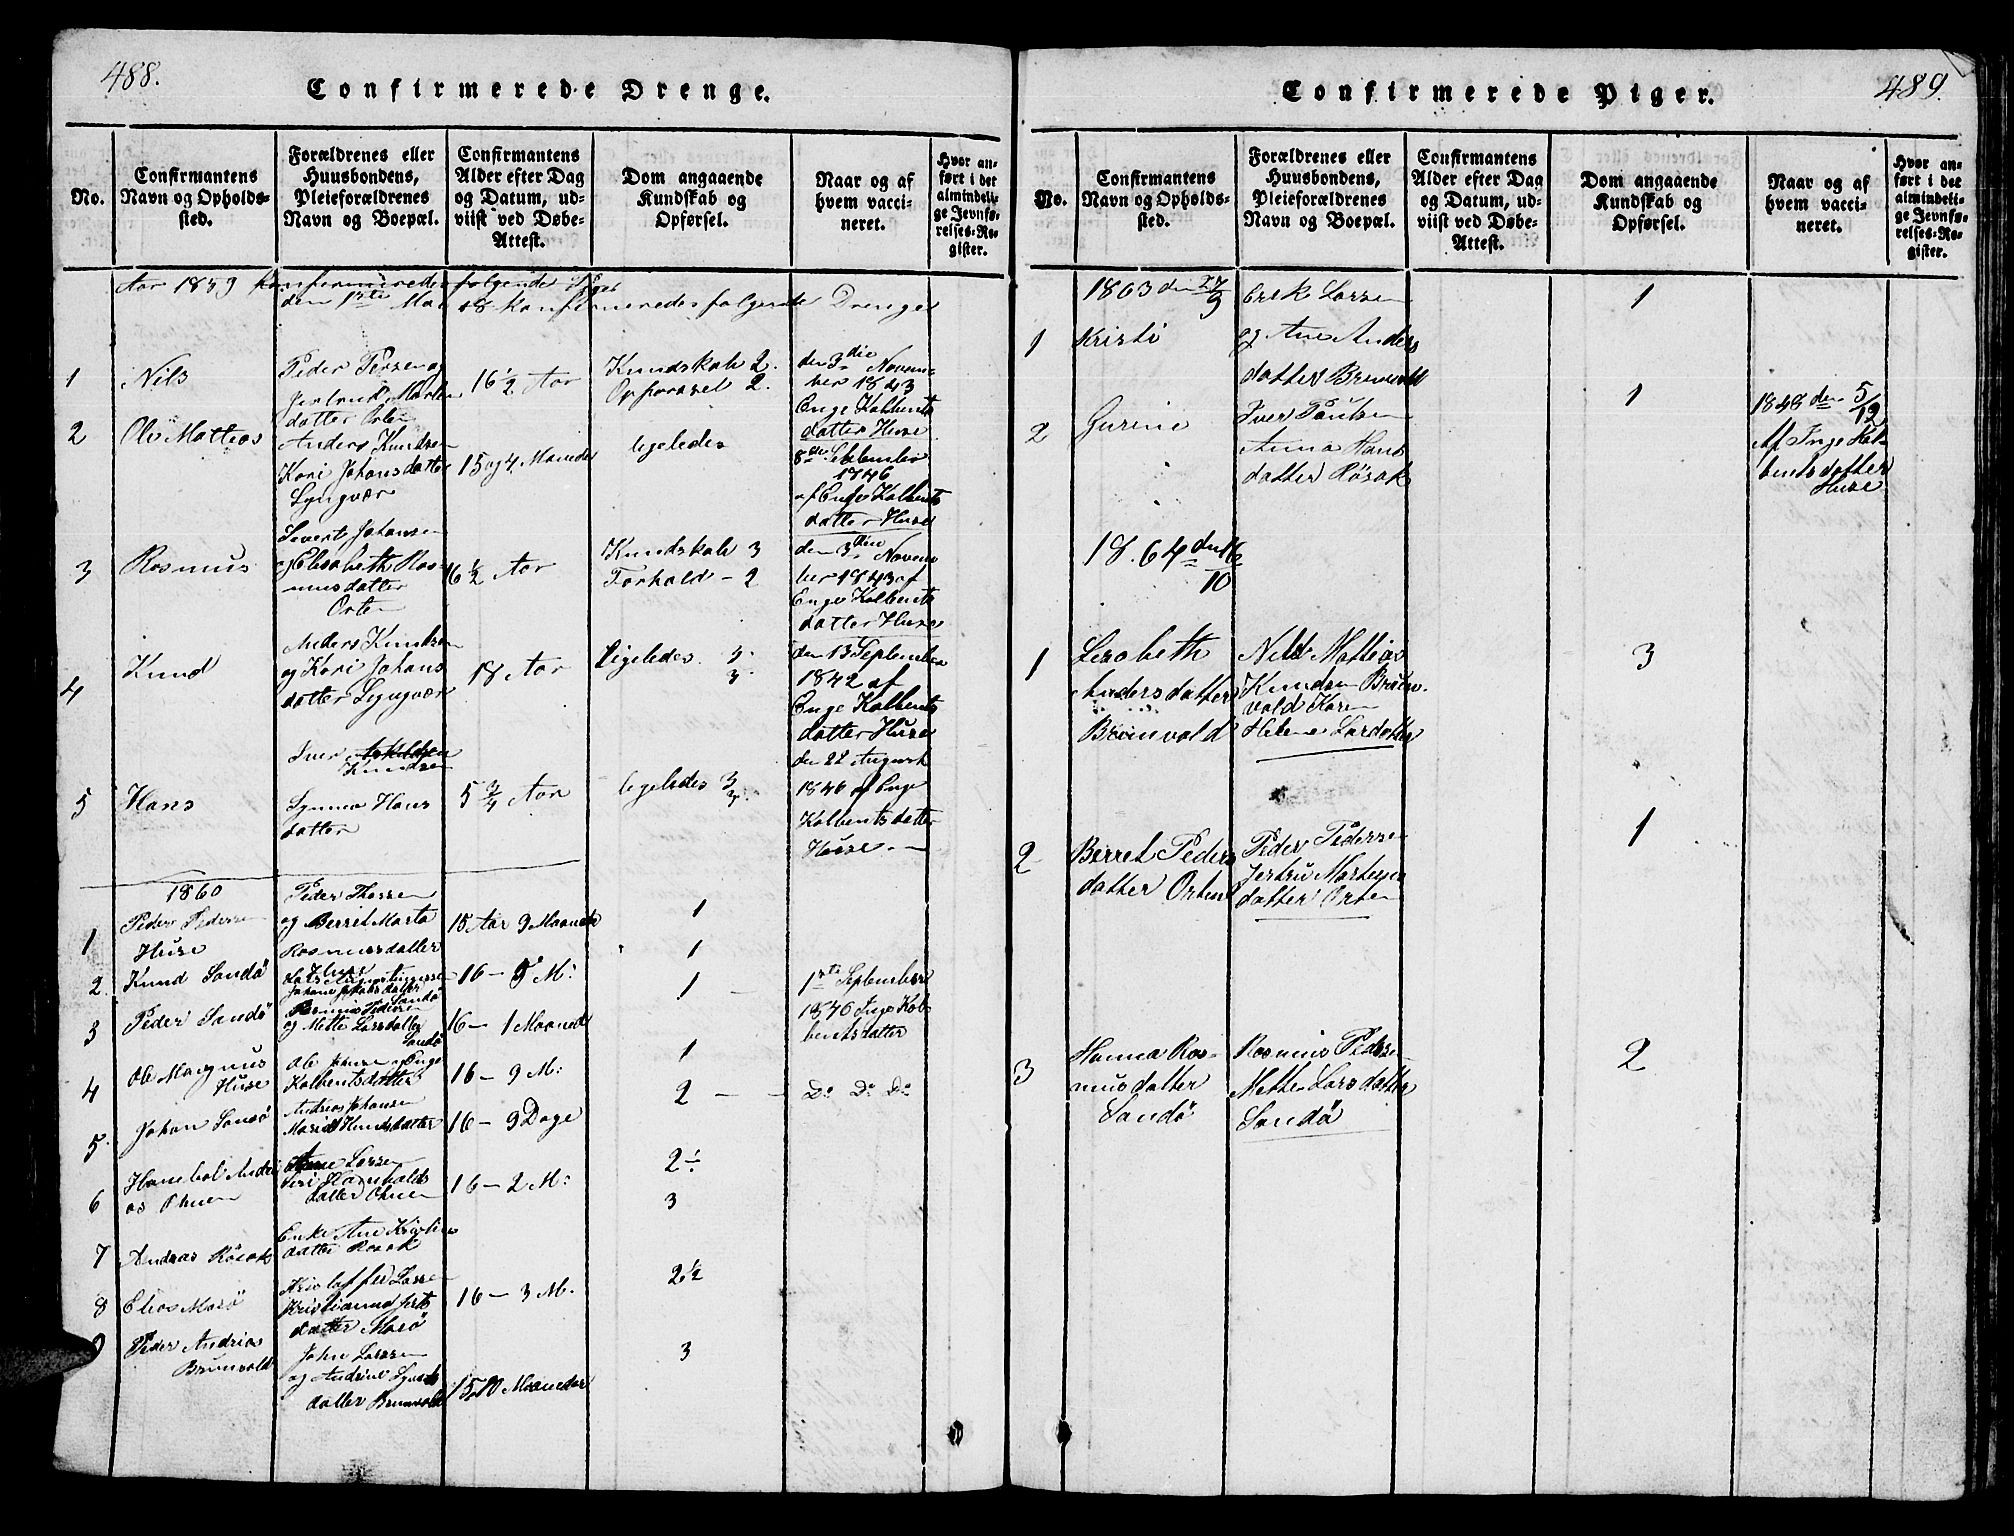 488.
Confirmerede Drenge.
No.
Confirmantens
Navn og Opholds-
sted.
Forældrenes eller
Huusbondens,
Pleieforældrenes
Navn og Boepæl.
Confirmantens
Alder efter Dag
og Datum, ud-
viist ved Døbe-
Attest.
Dom angaaende
Kundskab og
Opførsel.
Naar og af
hvem vacci-
neret.
Hvor an-
ført i det
almindeli-
ge Jevnfø-
relses-Re-
gister.
Aar 1859 konfirmeredes følgende
den 1ste Mai 18 konfirmeredes følgende Drenge
1
Nils
Peder Persen og
Jertrud Marten
datter Orten
16 1/2 Aar
Kundskab 2.
Opførsel 2.
den 3die Novem
ber 1843
Enge Kolbents
datter Huse
2
Ole Matteas
Anders Knudsen
Kari Johansdatter
Lyngvær
15 og 4 Maaneder
ligeledes
8de September
1846
af Enge Kolbents
datter Huse
3
Rasmus
Sivert Johansen
og Elisabeth Ras
musdatter
Orten
16 1/2 Aar
Kundskab 3
Forhold - 2
den 3die Novem
ber 1843 af
Enge Kolbents
datter Huse
4
Knud
Anders Knudsen
og Kari Johans
datter Lyngvær
18 Aar
Ligeledes 3.
3.
den 13 September
1842 af
Enge Kolbents
datter Huse
5
Hans
Iver
Knudsen
Hans
datter
5 3/4 Aar
ligeledes 3
3.
den 22 August
1846 af Enge
Kolbentsdatter
Huse
1860
1
Peder Pedersen
Huse
Peder Thorsen
og Berret Marta
Rasmusdatter
Huse
15 Aar 9 Maaneder
1
2
Knud Sandö
Johansdatter
Sandö
16 - 5 M:
1
3
Peder Sandö
Rasmus Pedersen
og Mette Larsdatter
Sandö
16 - 1 Maaned
1 -
1ste September
1846 Inge Kol
bentsdatter
4
Ole Magnus
Huse
Ole Johnsen og Enge
Kolbentsdatter
16 - 9 M:
1
5.
Johan Sandö
Andreas Johansen
Marit Knudsdatter
16 - 9 Dage
2 - -
Do Do Do
6
Hanibal Andre
as Ohnen
Larsen
Siri Hanibals
datter Ohnen
16 - 2 M:
2 ÷
7
Andreas Rösok
Enke Ane Kristians
datter Rösok
3
8
Elias Marö
Kristoffer Larsen
datter Marö
16 - 3 M.
2 1/2
9
Peder Andreas
Brunvold
John Larsen
og Andrine
datter Brunvold
15 10 Maaneder
3
489.
Confirmerede Piger.
No.
Confirmantens
Navn og Opholds-
sted.
Forældrenes eller
Huusbondens,
Pleieforældrenes
Navn og Boepæl.
Confirmantens
Alder efter Dag
og Datum, ud-
viist ved Døbe-
Attest.
Dom angaaende
Kundskab og
Opførsel.
Naar og af
hvem vacci-
neret.
Hvor an-
ført i det
almindeli-
ge Jevnfø-
relses-Re-
gister.
1863 den 27/9
1
Kristi
Erik Larsen
og Ane Anders
datter Brunvold
1
2
Gurine
Iver Paulsen
Anna Hans
datter Rösok
1
1848 den 5/12
Af Inge Kol
bentsdatter
Huse
18.64 den 16/10
1
Lisabeth
Andersdatter
Brunvold
Nils Mattias
Knudsen Brun
vold Karen
Helene Larsdatter
3
2
Berret Peders
datter Orten
Peder Pedersen
Jertru Martens
datter Orten
1
3
Hanna Ras-
musdatter
Sandö
Rasmus Pedersen
Mette Larsdatter
Sandö
2